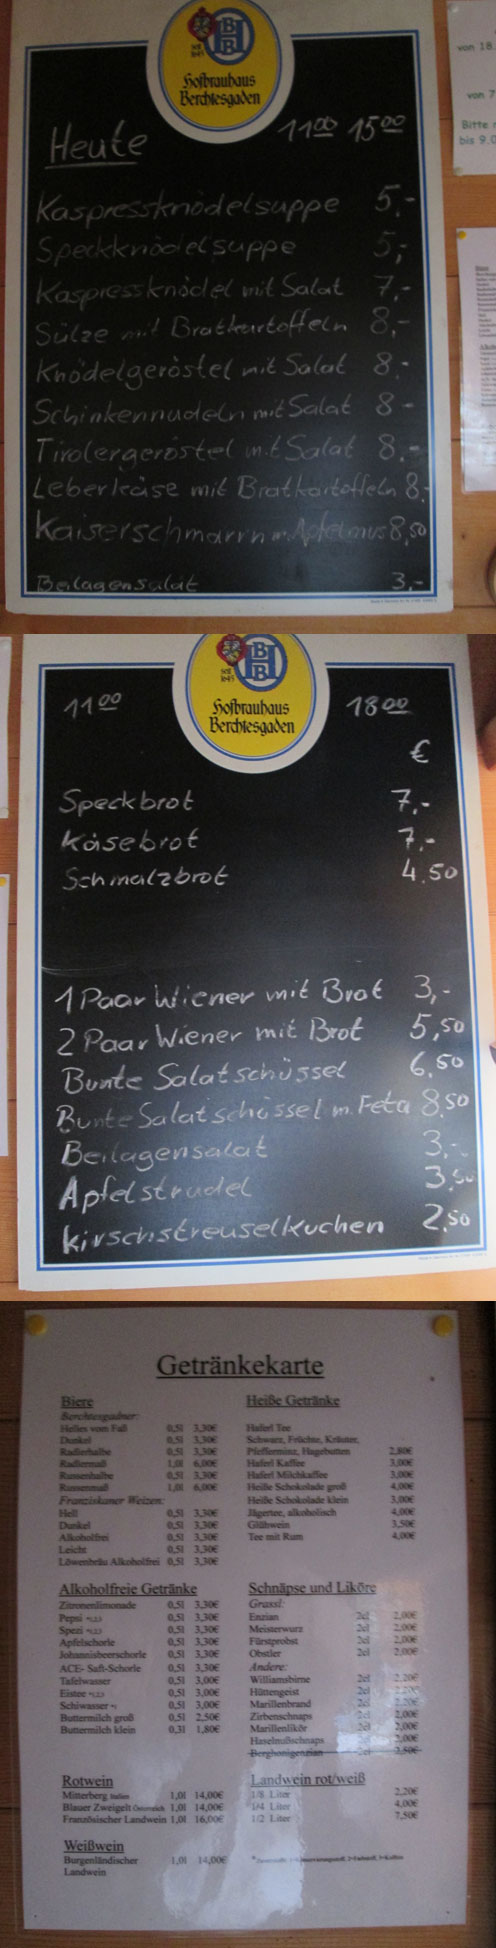 von 18.
von 7
Bitte
bis 9.0
HB
seit 1645
Hofbrauhaus
Berchtesgaden
11 00 15 00
Heute
Kaspressknödelsuppe 5,-
Speckknödelsuppe 5,-
Kaspressknödel mit Salat 7,-
Sülze mit Bratkartoffeln 8,-
Knödelgeröstel mit Salat 8,-
Schinkennudeln mit Salat 8-
Tirolergeröstel mit Salat 8,-
Leberkäse mit Bratkartoffeln 8,-
Kaiserschmarrn m. Apfelmus 8,50
Beilagensalat 3,-
HB
seit 1645
Hofbrauhaus
Berchtesgaden
11 00 18 00
€
Speckbrot 7,-
Käsebrot 7,-
Schmalzbrot 4.50
1 Paar Wiener mit Brot 3,-
2 Paar Wiener mit Brot 5,50
Bunte Salatschüssel 6.50
Bunte Salatschüssel m. Feta 8.50
Beilagensalat 3,-
Apfelstrudel 3,50
Kirschstreuselkuchen 2.50
Getränkekarte
Biere
Berchtesgadner:
Helles vom Faß 0,5l 3,30€
Dunkel 0,5l 3,30€
Radlerhalbe 0,5l 3,30€
Radlermaß 1,0l 6,00€
Russenhalbe 0,5l 3,30€
Russenmaß 1,0l 6,00€
Franziskaner Weizen:
Hell 0,5l 3,30€
Dunkel 0,5l 3,30€
Alkoholfrei 0,5l 3,30€
Leicht 0,5l 3,30€
Löwenbräu Alkoholfrei 0,5l 3,30€
Heiße Getränke
Haferl Tee
Schwarz, Früchte, Kräuter,
Pfefferminz, Hagebutten 2,80€
Haferl Kaffee 3,00€
Haferl Milchkaffee 3,00€
Heiße Schokolade groß 4,00€
Heiße Schokolade klein 3,00€
Jägertee, alkoholisch 4,00€
Glühwein 3,50€
Tee mit Rum 4,00€
Alkoholfreie Getränke
Zitronenlimonade 0,5l 3,30€
Pepsi *1,2,3 0,5l 3,30€
Spezi *1,2,3 0,5l 3,30€
Apfelschorle 0,5l 3,30€
Johannisbeerschorle 0,5l 3,30€
ACE- Saft-Schorle 0,5l 3,30€
Tafelwasser 0,5l 3,00€
Eistee *1,2,3 0,5l 3,00€
Schiwasser *1 0,5l 3,00€
Buttermilch groß 0,5l 2,50€
Buttermilch klein 0,3l 1,80€
Schnäpse und Liköre
Grassl:
Enzian 2cl 2,00€
Meisterwurz 2cl 2,00€
Fürstprobst 2cl 2,00€
Obstler 2cl 2,00€
Andere:
Williamsbirne 2cl 2,20€
Hüttengeist 2cl 2,20€
Marillenbrand 2cl 2,20€
Zirbenschnaps 2cl 2,00€
Marillenlikör 2cl 2,00€
Haselnußschnaps 2cl 2,00€
Berghonigenzian 2cl 2,50€
Rotwein
Mitterberg Italien 1,0l 14,00€
Blauer Zweigelt Österreich 1,0l 14,00€
Französischer Landwein 1,0l 16,00€
Landwein rot/weiß
1/8 Liter 2,20€
1/4 Liter 4,00€
1/2 Liter 7,50€
Weißwein
Burgenländischer 1,0l 14,00€
Landwein